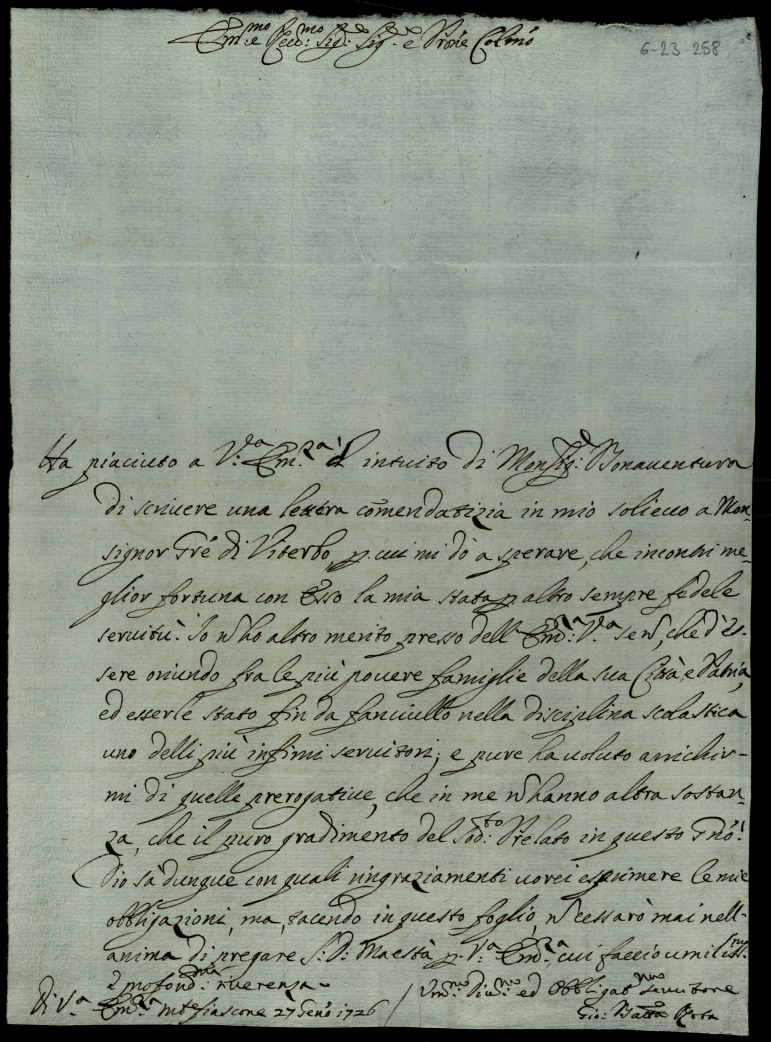 Em.mo e Rev.mo Sig.re Sig.re e Prone Colmo
6-23-258
Ha piaciuto a V.ra Em.za il intuito di Monsig.e Bonaventura
di scrivere una lettra comendatizia in mio solievo a Mon-
signor Gre di Viterbo, p. cui mi dò a sperare, che incontri me-
glior fortuna con Esso la mia stata p. altro sempre fedele
servitù. Io n ho altro merito presso dell'Em.za V.ra se n, che d'es-
sere oriundo fra le più povere famiglie della sua Città, e Patria,
ed esserle stato fin da fanciullo nella disciplina scolastica
uno delli più infimi servitori; e pure ha voluto arrichir-
mi di quelle prerogative, che in me n hanno altra sostan-
za, che il puro gradimento del Sod.to Prelato in questo Gno.
Dio sà dunque con quali ringraziamenti vorei esprimere le mie
obbligazioni, ma, tacendo in questo foglio, n cessarò mai nell-
anima di pregare S. D. Maestà p. V.a Em.a cui faccio umiliss.ma
e profond.ma riverenza
Di V.a Em.za Mtefiascone 27 Geno 1726 / Um.mo Div.mo ed Obbligat.mo Servitore
Gio: Batta Rosa